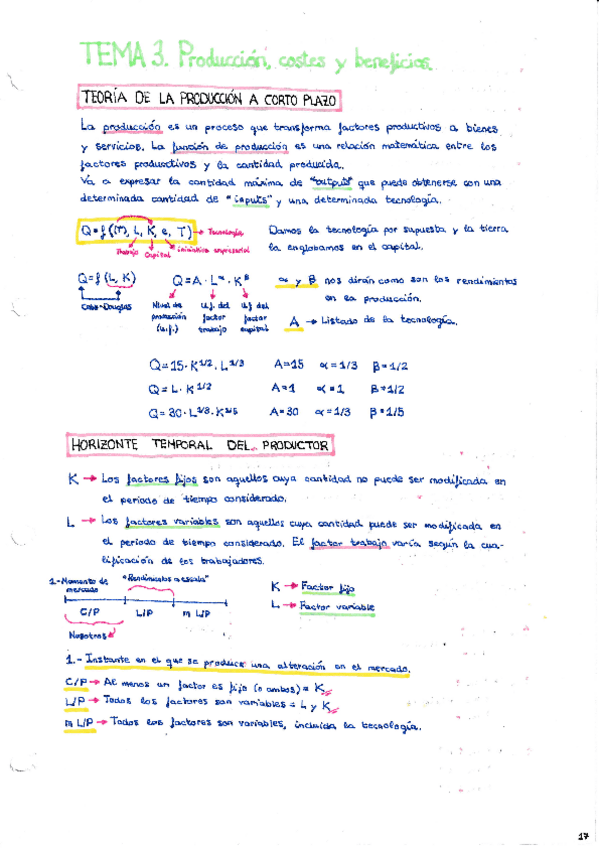 TEMA 3. Producción, costes y beneficios.
TEORÍA DE LA PRODUCCIÓN A CORTO PLAZO
La producción es un proceso que transforma factores productivos a bienes
y servicios. La función de producción es una relación matemática entre los
factores productivos y la cantidad producida.
Va a expresar la cantidad máxima de "outputs" que puede obtenerse con una
determinada cantidad de "inputs" y una determinada tecnología.
Q = f (m, L, K, e, T) → Tecnología
Trabajo Capital iniciativa empresarial
Damos la tecnología por supuesta y la tierra
la englobamos en el capital.
Q = f (L, K)
Cobb-Douglas
Q = A · L^α · K^β
Nivel de U.f. del U.f. del
producción factor factor
(u.f.) trabajo capital
α y β nos dirán como son los rendimientos
en la producción.
A → Listado de la tecnología.
Q = 15 · K^1/2 · L^1/3 A = 15 α = 1/3 β = 1/2
Q = L · K^1/2 A = 1 α = 1 β = 1/2
Q = 30 · L^1/3 · K^1/5 A = 30 α = 1/3 β = 1/5
HORIZONTE TEMPORAL DEL PRODUCTOR
K → Los factores fijos son aquellos cuya cantidad no puede ser modificada en
el periodo de tiempo considerado.
L → Los factores variables son aquellos cuya cantidad puede ser modificada en
el periodo de tiempo considerado. El factor trabajo varía según la cua-
lificación de los trabajadores.
1.- Momento de mercado
"Rendimientos a escala"
C/P L/P m L/P
Nosotros
K → Factor fijo
L → Factor variable
1.- Instante en el que se produce una alteración en el mercado.
C/P → Al menos un factor es fijo (o ambos) = K
L/P → Todos los factores son variables = L y K
m L/P → Todos los factores son variables, incluida la tecnología.
17